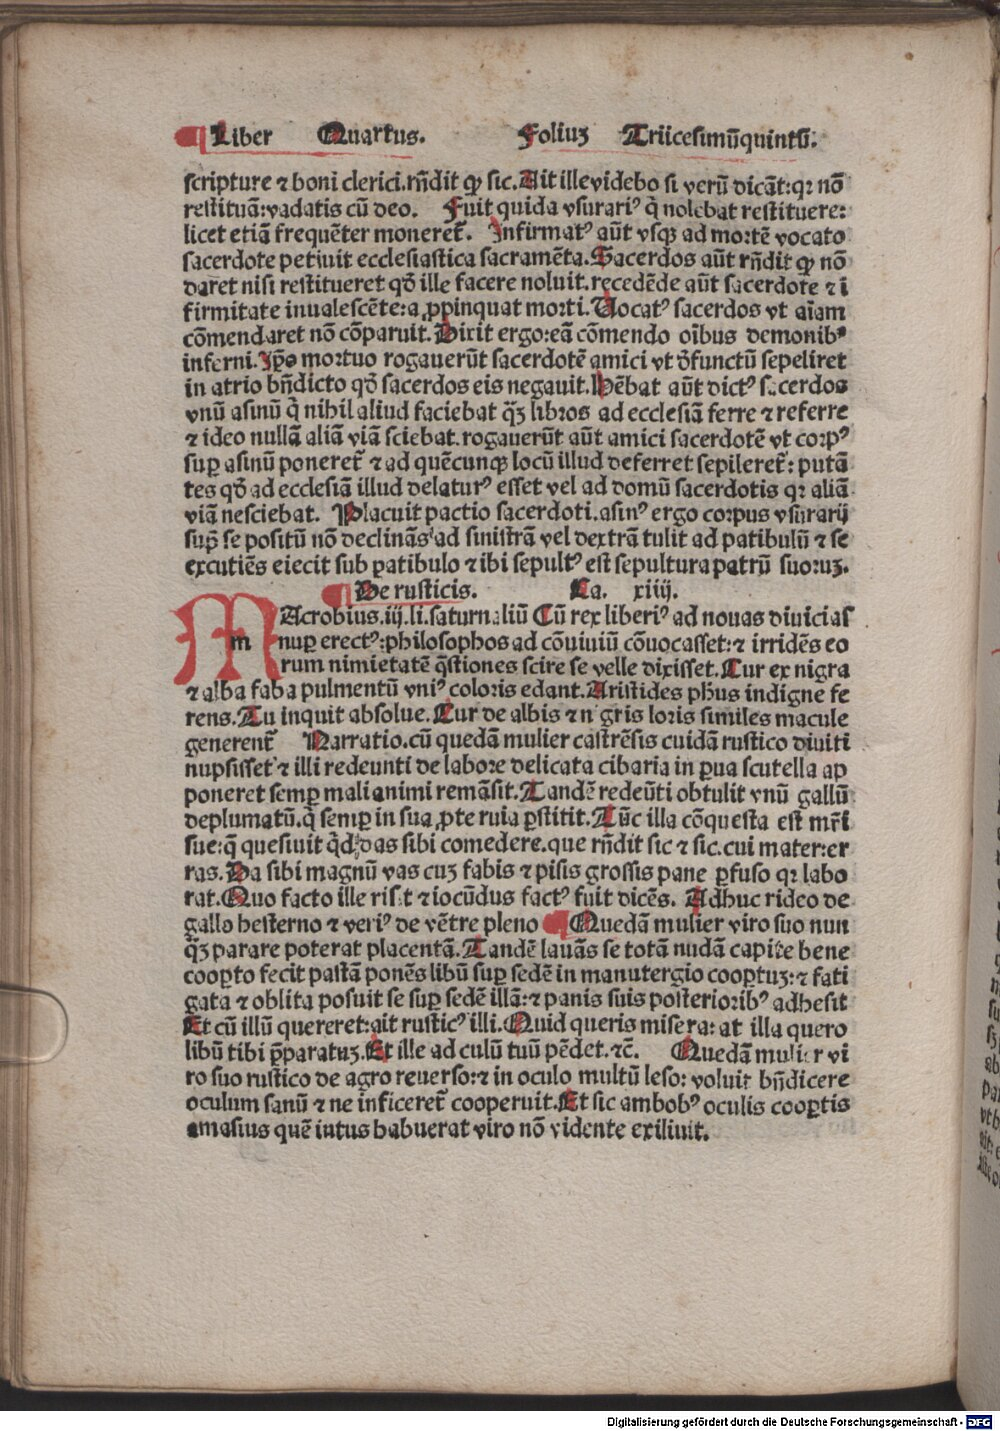 ¶ Liber Quartus. Foliuꝫ Triicesimūquintū.
scripture ⁊ boni clerici.rñdit ꝙ sic.Ait ille videbo si verū dicāt:qꝛ nō
restituā:vadatis cū deo. Fuit quida vsurariꝰ q̄ nolebat restituere:
licet etiā frequēter moneret̃. Infirmatꝰ aūt vsqꝫ ad moꝛtē vocato
sacerdote petiuit ecclesiastica sacramēta.Sacerdos aūt rñdit ꝙ nō
daret nisi restitueret qd̄ ille facere noluit.recedēde aūt sacerdote ⁊ ī
firmitate inualescēte:aꝓpinquat moꝛti.Uocatꝰ sacerdos vt aīam
cōmendaret nō cōparuit.Dixit ergo:eā cōmendo oībus demonibꝰ
inferni.Ip̄o moꝛtuo rogauerūt sacerdotē amici vt d̄functū sepeliret
in atrio bn̄dicto qd̄ sacerdos eis negauit.Hēbat aūt dictꝰ sacerdos
vnū asinū q̄ nihil aliud faciebat q̄ꝫ libꝛos ad ecclesiā ferre ⁊ referre
⁊ ideo nullā aliā viā sciebat.rogauerūt aūt amici sacerdotē vt coꝛpꝰ
suꝑ asinū poneret̃ ⁊ ad quēcunqꝫ locū illud deferret sepileret̃: putā
tes qd̄ ad ecclesiā illud delaturꝰ esset vel ad domū sacerdotis qꝛ aliā
viā nesciebat. Placuit pactio sacerdoti.asinꝰ ergo coꝛpus vsurarij
suꝑ se positū nō declinās ad sinistrā vel dextrā tulit ad patibulū ⁊ se
excutiēs eiecit sub patibulo ⁊ ibi sepultꝰ est sepultura patrū suoꝛuꝫ.
¶ De rusticis. Ca. xiiij.
MAcrobius.iij.li.saturnaliū Cū rex liberiꝰ ad nouas diuicias
m nuꝑ erectꝰ:philosophos ad cōuiuiū cōuocasset:⁊ irridēs eo
rum nimietatē q̄stiones scire se velle dixisset.Cur ex nigra
⁊ alba faba pulmentū vniꝰ coloꝛis edant.Aristides ph̄us indigne fe
rens.Tu inquit absolue.Cur de albis ⁊ nigris loꝛis similes macule
generent̃ Narratio.cū quedā mulier castrēsis cuidā rustico diuiti
nupsisset ⁊ illi redeunti de laboꝛe delicata cibaria in ꝑua scutella ap
poneret semꝑ mali animi remāsit.Tandē redeūti obtulit vnū gallū
deplumatū.q̄ semꝑ in sua ꝓte ruia ꝑstitit.Tūc illa cōquesta est mr̄i
sue:q̄ quesiuit q̄d das sibi comedere.que rñdit sic ⁊ sic.cui mater:er
ras.Da sibi magnū vas cuꝫ fabis ⁊ pisis grossis pane ꝑfuso qꝛ labo
rat.Quo facto ille risit ⁊ iocūdus factꝰ fuit dicēs. Adhuc rideo de
gallo hesterno ⁊ veriꝰ de vētre pleno ¶ Quedā mulier viro suo nun
q̄ꝫ parare poterat placentā.Tandē lauās se totā nudā capite bene
cooꝑto fecit pastā ponēs libū suꝑ sedē in manutergio cooꝑtuꝫ:⁊ fati
gata ⁊ oblita posuit se suꝑ sedē illā:⁊ panis suis posterioꝛibꝰ adhesit
Et cū illū quereret:ait rusticꝰ illi.Quid queris misera: at illa quero
libū tibi p̄paratuꝫ.Et ille ad culū tuū pēdet.⁊c̄. Quedā mulier vi
ro suo rustico de agro reuerso:⁊ in oculo multū leso: voluit bn̄dicere
oculum sanū ⁊ ne inficeret̃ cooperuit.Et sic ambobꝰ oculis cooꝑtis
amasius quē intus habuerat viro nō vidente exiliuit.
Digitalisierung gefördert durch die Deutsche Forschungsgemeinschaft - DFG